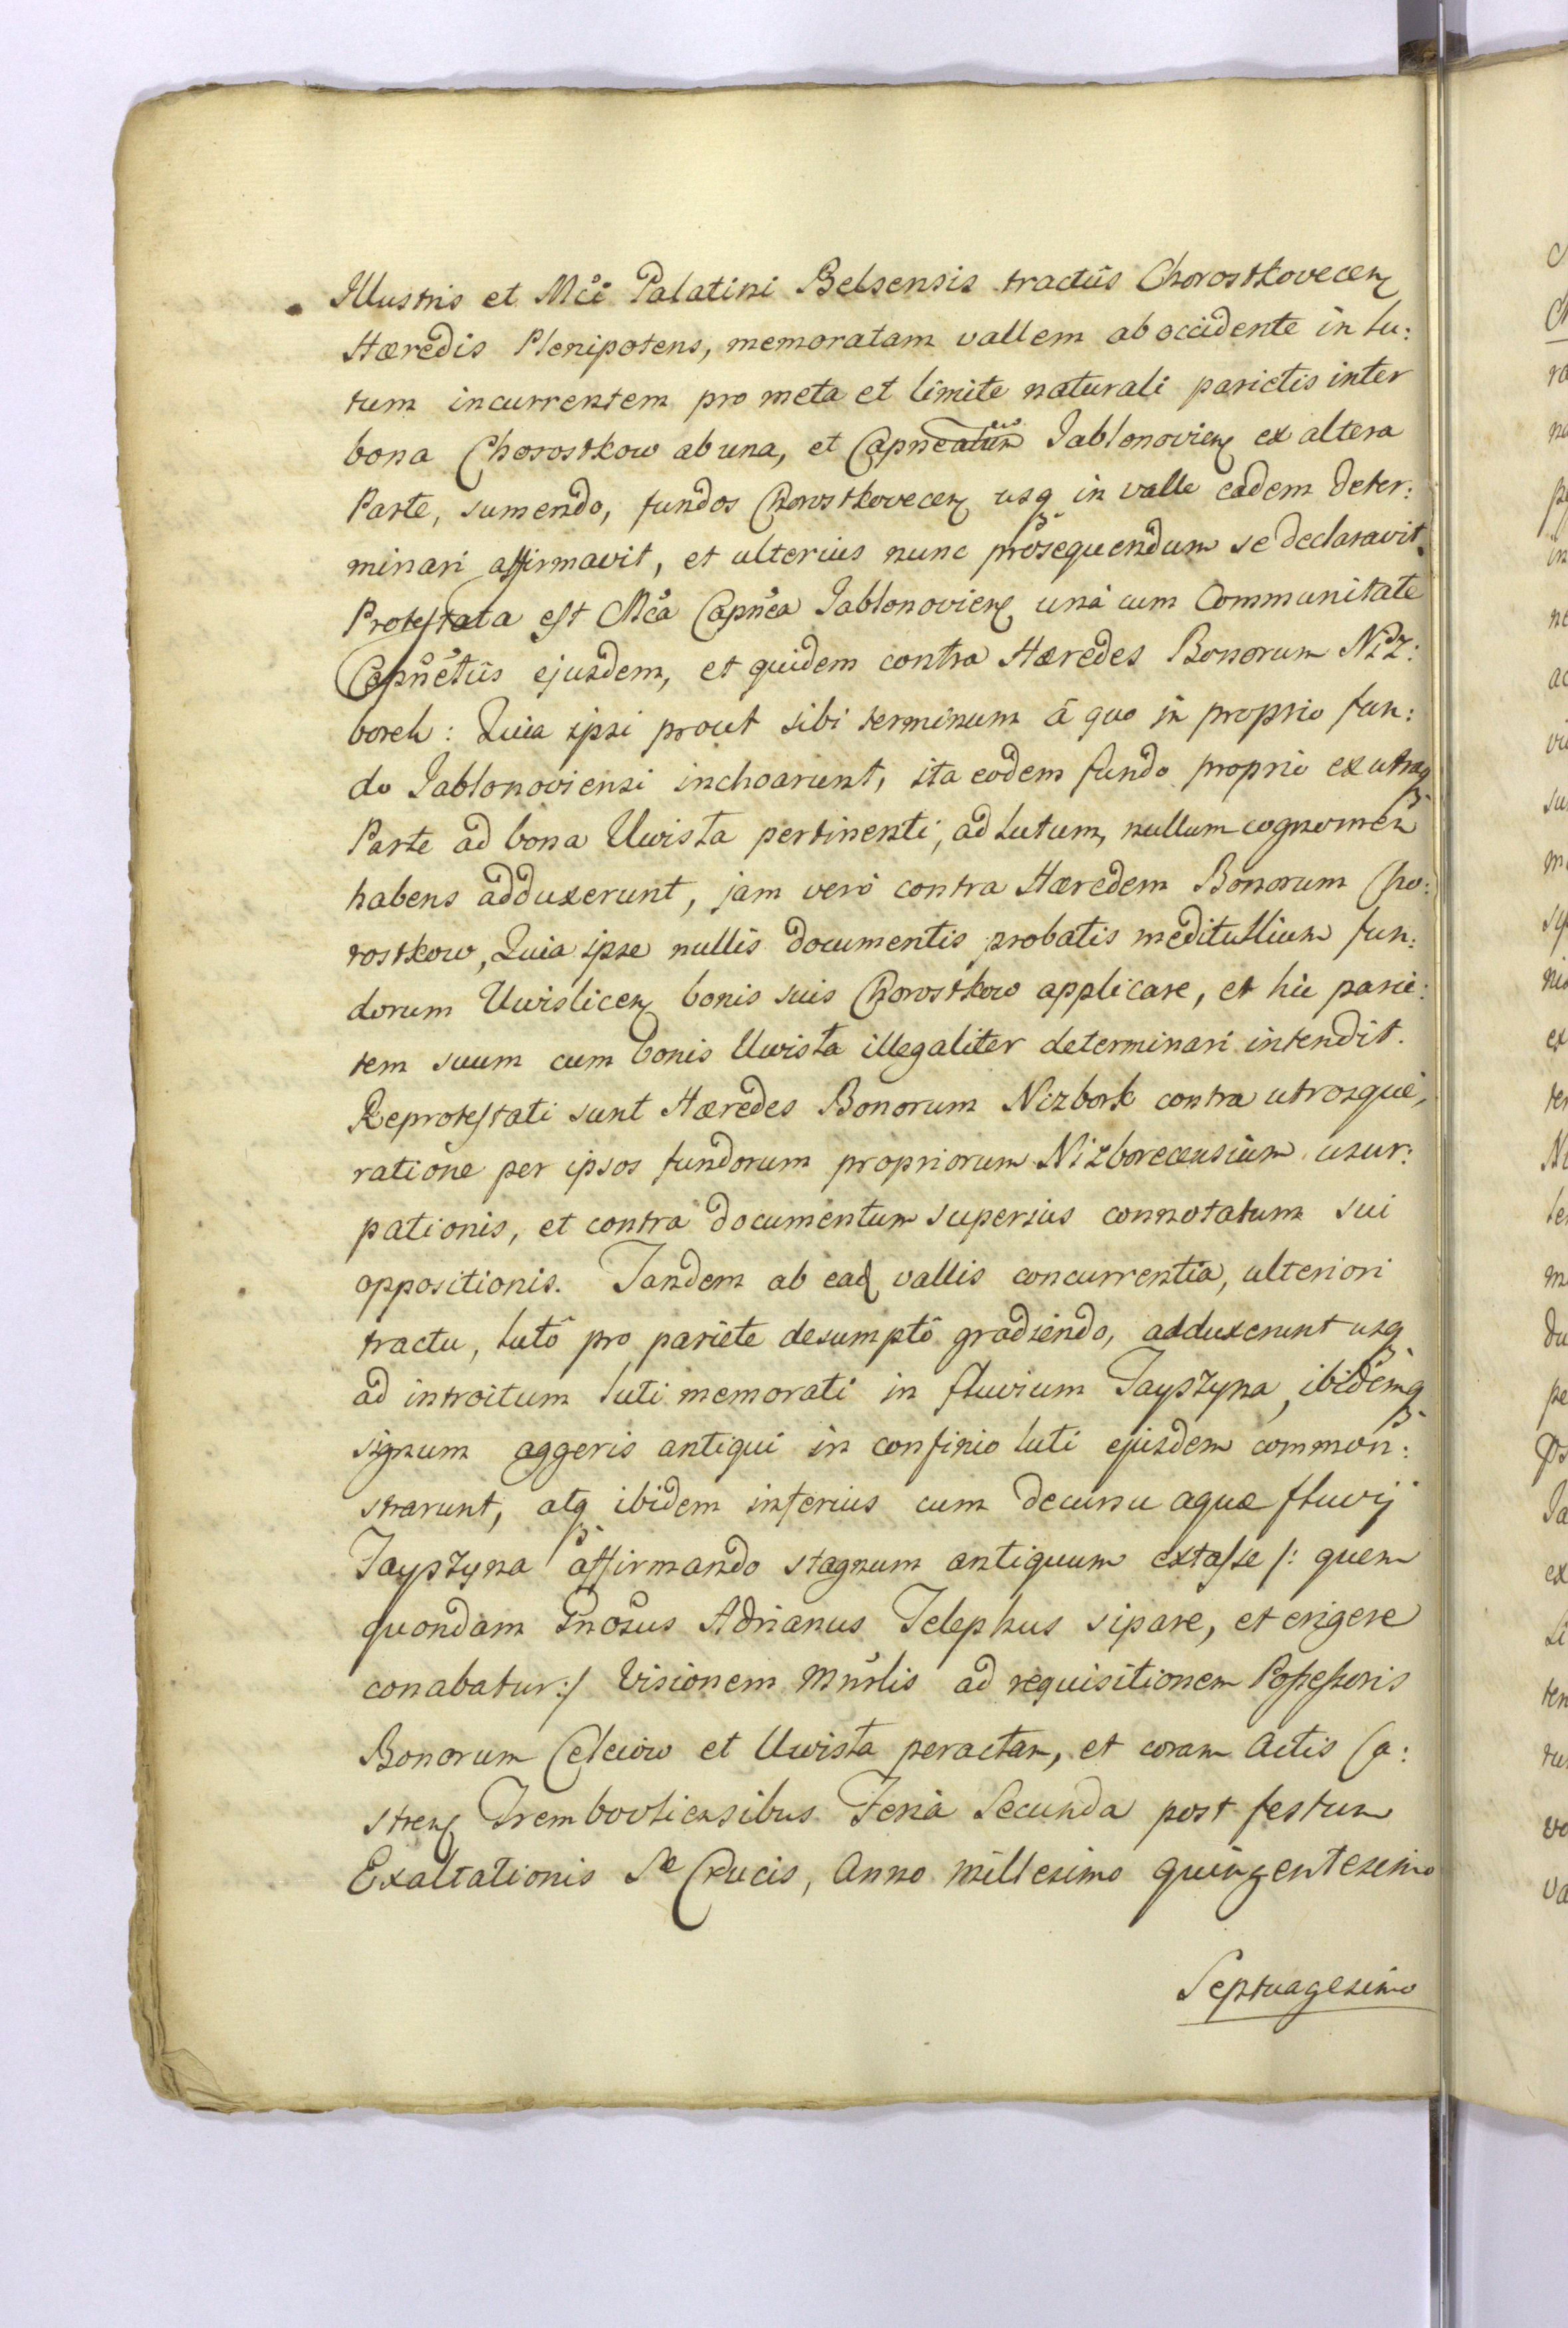 Illustris et Mci Palatini Belsensis tractûs Chorostkovecen
Hæredis Plenipotens, memoratam vallem ab occidente in lu:
tum incurrentem pro meta et limite naturali parietis inter
bona Chorostkow ab una, et Jablonovien ex altera
Parte, sumendo, fundos Chorostkovecen usq in valle eadem deter:
minari affirmavit, et ulterius nunc prosequendum se declaravit.
Protestata est Mca Capnea Jablonovien unà cum Communitate
Capnetûs ejusdem, et quidem contra Hæredes Bonorum Niz:
boreh: Quia ipsi prout sibi terminum â quo in proprio fun:
do Jablonoviensi inchoarunt, ita eodem fundo proprio ex utraq
Parte ad bona Uwista pertinenti, ad lutum, nullum cognomen
habens adduxerunt, jam verò contra Hæredem Bonorum Cho:
rostkow, Quia ipse nullis documentis probatis meditullium fun:
dorum Uwislicen bonis suis Chorostkow applicare, et hic parie:
tem suum cum bonis Uwista illegaliter determinari intendit.
Reprotestati sunt Hæredes Bonorum Nizbork contra utrosque,
ratione per ipsos fundorum propriorum Nizborecensium usur:
pationis, et contra documentum superius connotatum sui
oppositionis. Tandem ab ead vallis concurrentia, ulteriori
tractu, lutô pro pariete desumptô gradiendo, adduxerunt usq
ad introitum luti memorati in fluvium Tayszyna, ibidemq
signum aggeris antiqui in confinio luti ejusdem common:
strarunt, atq ibidem inferius cum decursu aquæ fluvij
Tayszyna affirmando stagnum antiquum extasse /: quem
quondam Gnosus Adrianus Telephus sipare, et erigere
conabatur:/ Visionem Mnrlis ad requisitionem Possessoris
Bonorum Celeiow et Uwista peractam, et coram Actis Ca:
stren Trembovliensibus Feria Secunda post festum
Exaltationis Sæ Crucis, Anno millesimo quingentesimo
Septuagesimo